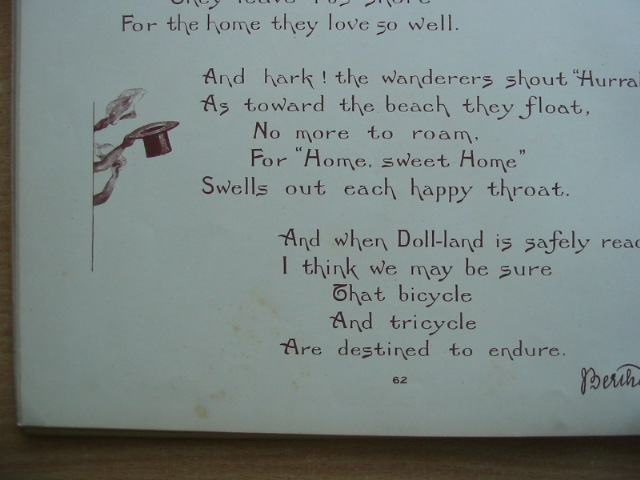 They leave
For the home they love so well.
And hark! the wanderers shout "Hurra
As toward the beach they float,
No more to roam,
For "Home, sweet Home"
Swells out each happy throat.
And when Doll-land is safely reac
I think we may be sure
That bicycle
And tricycle
Are destined to endure.
62
Bertha